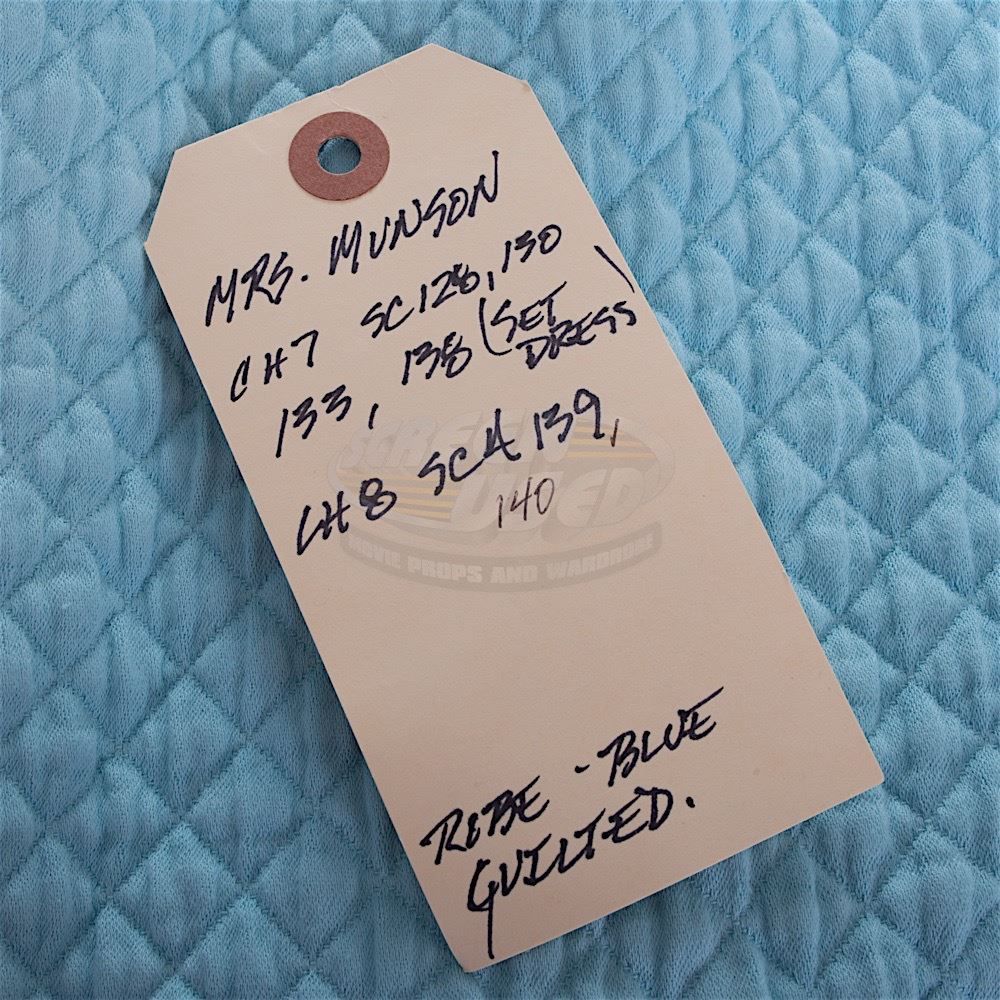 MRS. MUNSON
CH7 SC128, 130
133, 138 (SET
DRESS)
CH8 SC 139,
140
SCREEN
USED
MOVIE PROPS AND WARDROBE
ROBE - BLUE
QUILTED.